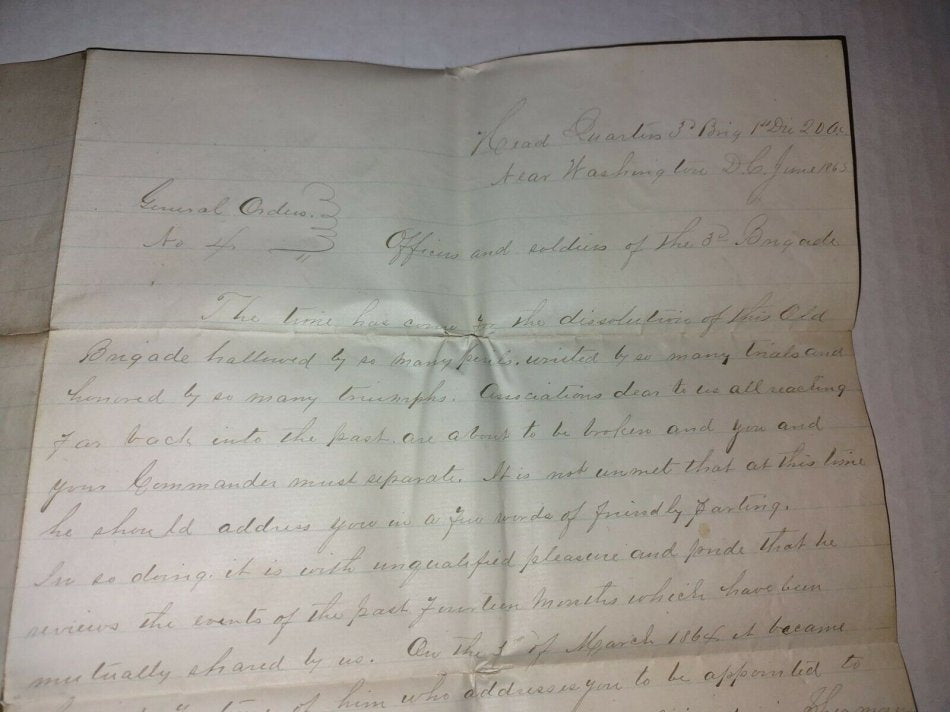 Head Quarters 3d Brig 1st Div 20 A.C.
Near Washington D.C. June 1865
General Orders.
No 4 Officers and soldiers of the 3d Brigade
The time has come for the dissolution of this Old
Brigade hallowed by so many perils, united by so many trials and
honored by so many triumphs. Associations dear to us all reaching
far back into the past are about to be broken and you and
your Commander must separate. It is not unmet that at this time
he should address you in a few words of friendly Parting.
In so doing, it is with unqualified pleasure and pride that he
reviews the events of the past fourteen months which have been
mutually shared by us. On the of March 1864 it became
of him who addresses you to be appointed to